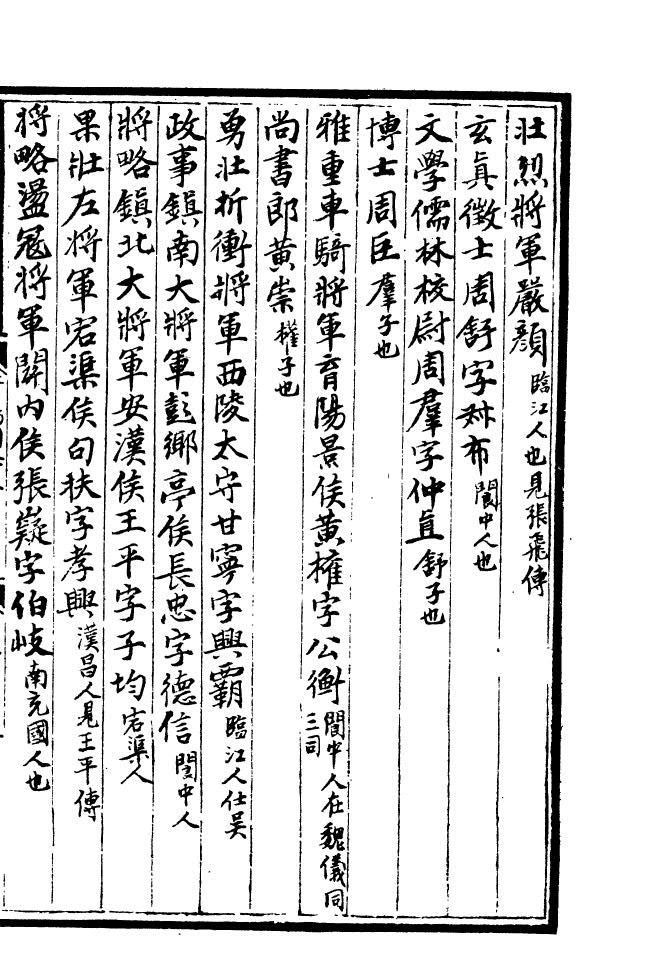 壯烈將軍嚴顏臨江人也見張飛傳
玄真徵士周舒字叔布閬中人也
文學儒林校尉周羣字仲直舒子也
博士周巨羣子也
雅重車騎將軍育陽景侯黃權字公衡閬中人在魏儀同三司
尚書郎黃崇權子也
勇壯折衝將軍西陵太守甘寧字興霸臨江人仕吳
政事鎮南大將軍彭鄉亭侯長忠字德信閬中人
將略鎮北大將軍安漢侯王平字子均宕渠人
果壯左將軍宕渠侯句扶字孝興漢昌人見王平傳
將略盪冦將軍關內侯張嶷字伯岐南充國人也